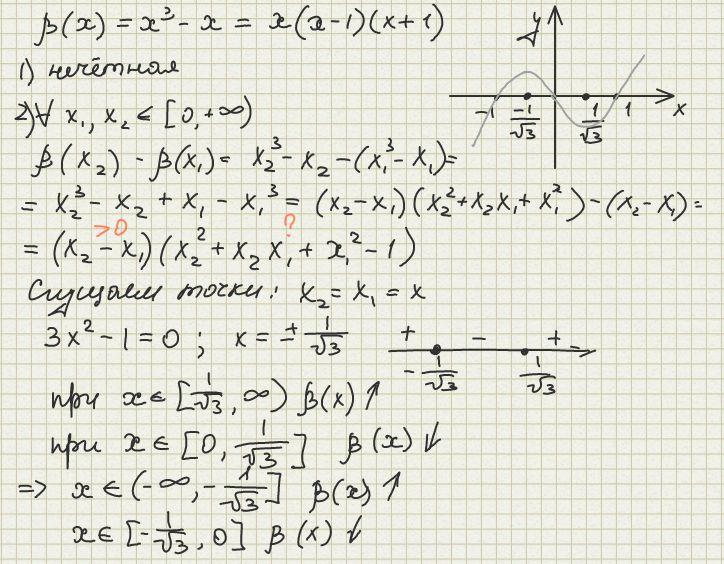 β(x) = x³ - x = x(x-1)(x+1)
y
1) нечётная
2) ∀ x₁, x₂ ∈ [0, +∞)
-1 -1/√3 1/√3 1 x
β(x₂) - β(x₁) = x₂³ - x₂ - (x₁³ - x₁) =
= x₂³ - x₂ + x₁ - x₁³ = (x₂ - x₁)(x₂² + x₂x₁ + x₁²) - (x₂ - x₁) =
>0 ?
= (x₂ - x₁)(x₂² + x₂x₁ + x₁² - 1)
Сгущаем точки: x₂ = x₁ = x
3x² - 1 = 0 ; x = ± 1/√3
+ - +
-1/√3 1/√3
при x ∈ [1/√3, ∞) β(x) ↑
при x ∈ [0, 1/√3] β(x) ↓
=> x ∈ (-∞, -1/√3] β(x) ↑
x ∈ [-1/√3, 0] β(x) ↓